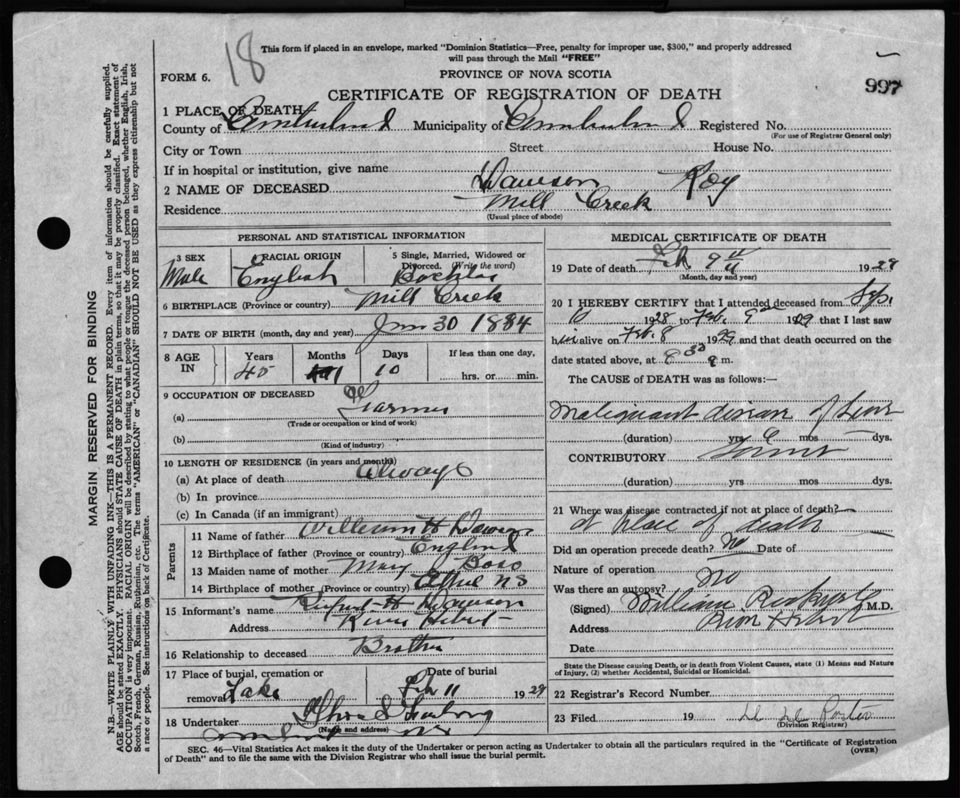 18
This form if placed in an envelope, marked "Dominion Statistics—Free, penalty for improper use, $300," and properly addressed
will pass through the Mail "FREE"
FORM 6.
PROVINCE OF NOVA SCOTIA
997
CERTIFICATE OF REGISTRATION OF DEATH
1 PLACE OF DEATH
County of Cumberland Municipality of Cumberland Registered No.
(For use of Registrar General only)
City or Town Street House No.
If in hospital or institution, give name
2 NAME OF DECEASED Dawson Roy
Residence Mill Creek
(Usual place of abode)
PERSONAL AND STATISTICAL INFORMATION
3 SEX
Male
4 RACIAL ORIGIN
English
5 Single, Married, Widowed or
Divorced. (Write the word)
6 BIRTHPLACE (Province or country) Mill Creek
7 DATE OF BIRTH (month, day and year) Jan 30 1884
8 AGE IN
Years Months Days If less than one day,
45 10 hrs. or min.
9 OCCUPATION OF DECEASED
(a) Farmer
(Trade or occupation or kind of work)
(b)
(Kind of industry)
10 LENGTH OF RESIDENCE (in years and months)
(a) At place of death always
(b) In province
(c) In Canada (if an immigrant)
Parents
11 Name of father William H Dawson
12 Birthplace of father (Province or country) England
13 Maiden name of mother Mary
14 Birthplace of mother (Province or country) NS
15 Informant's name Rufus H Dawson
Address River Hebert
16 Relationship to deceased Brother
17 Place of burial, cremation or Date of burial
removal Lake Feb 11 1929
18 Undertaker
(Name and address)
MEDICAL CERTIFICATE OF DEATH
19 Date of death Feb 9th 1929
(Month, day and year)
20 I HEREBY CERTIFY that I attended deceased from Sep.
1928 to Feb. 9 1929 that I last saw
him alive on Feb. 8 1929 and that death occurred on the
date stated above, at 8 30 m.
The CAUSE OF DEATH was as follows:—
Malignant disease of Liver
(duration) yrs. 6 mos. dys.
CONTRIBUTORY
(duration) yrs. mos. dys.
21 Where was disease contracted if not at place of death?
at place of death
Did an operation precede death? No Date of
Nature of operation
Was there an autopsy? No
(Signed) William Rockwell M.D.
Address River Hebert
Date
State the Disease causing Death, or in death from Violent Causes, state (1) Means and Nature
of Injury, (2) whether Accidental, Suicidal or Homicidal.
22 Registrar's Record Number
23 Filed 19
(Division Registrar)
SEC. 46—Vital Statistics Act makes it the duty of the Undertaker or person acting as Undertaker to obtain all the particulars required in the "Certificate of Registration
of Death" and to file the same with the Division Registrar who shall issue the burial permit. (OVER)
MARGIN RESERVED FOR BINDING
N.B.—WRITE PLAINLY WITH UNFADING INK—THIS IS A PERMANENT RECORD. Every item of information should be carefully supplied.
AGE should be stated EXACTLY. PHYSICIANS should STATE CAUSE OF DEATH in plain terms, so that it may be properly classified. Exact statement of
OCCUPATION is very important. RACIAL ORIGIN will be described by stating to what people or tongue the deceased person belonged, whether English, Irish,
Scotch, French, German, Russian, Ruthenian, etc. The terms "AMERICAN" or "CANADIAN" SHOULD NOT BE USED as they express citizenship but not
a race or people. See instructions on back of Certificate.